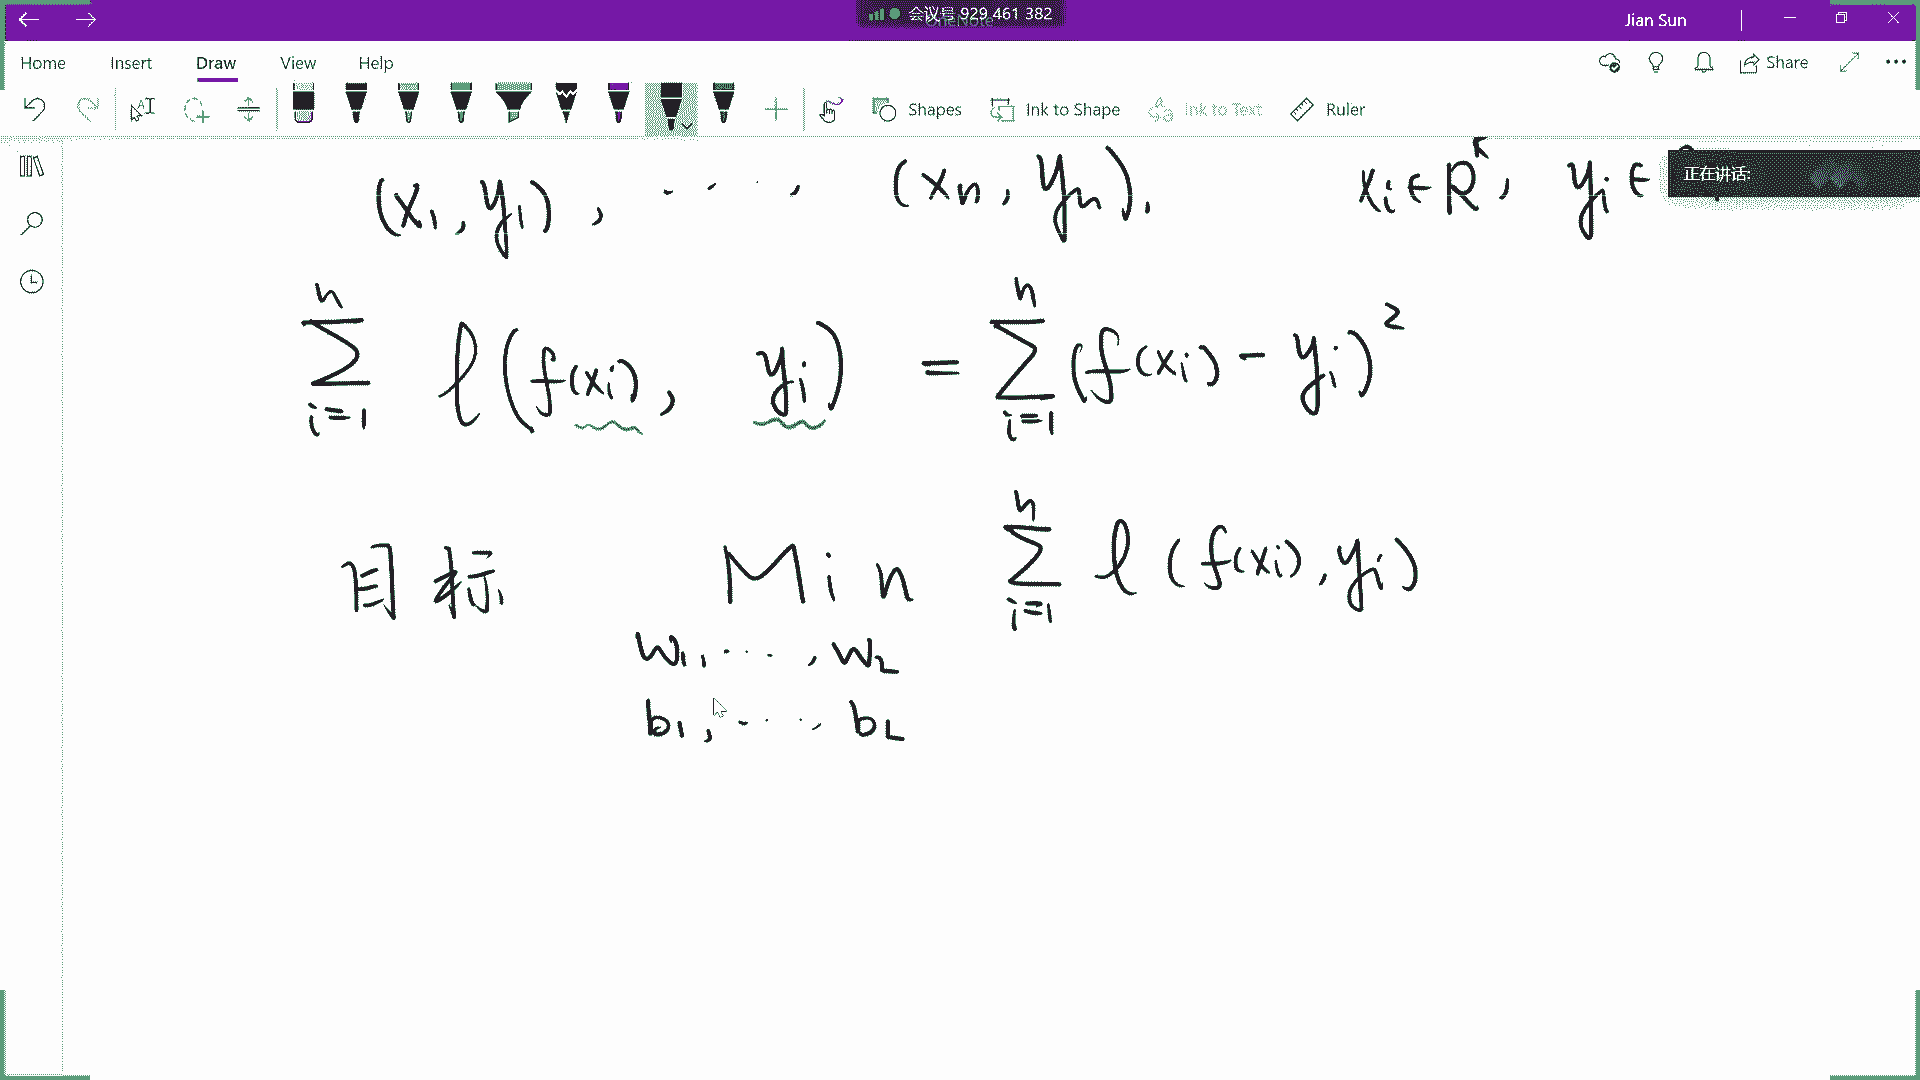 会议号 929 461 382
Jian Sun
Home Insert Draw View Help Share
Shapes Ink to Shape Ink to Text Ruler
正在讲话:
(x₁, y₁), ····, (xₙ, yₙ). xᵢ ∈ Rᵏ, yᵢ ∈
∑ᵢ₌₁ⁿ ℓ(f(xᵢ), yᵢ) = ∑ᵢ₌₁ⁿ (f(xᵢ) - yᵢ)²
目标 Min ∑ᵢ₌₁ⁿ ℓ(f(xᵢ), yᵢ)
w₁, ···, w_L
b₁, ···, b_L